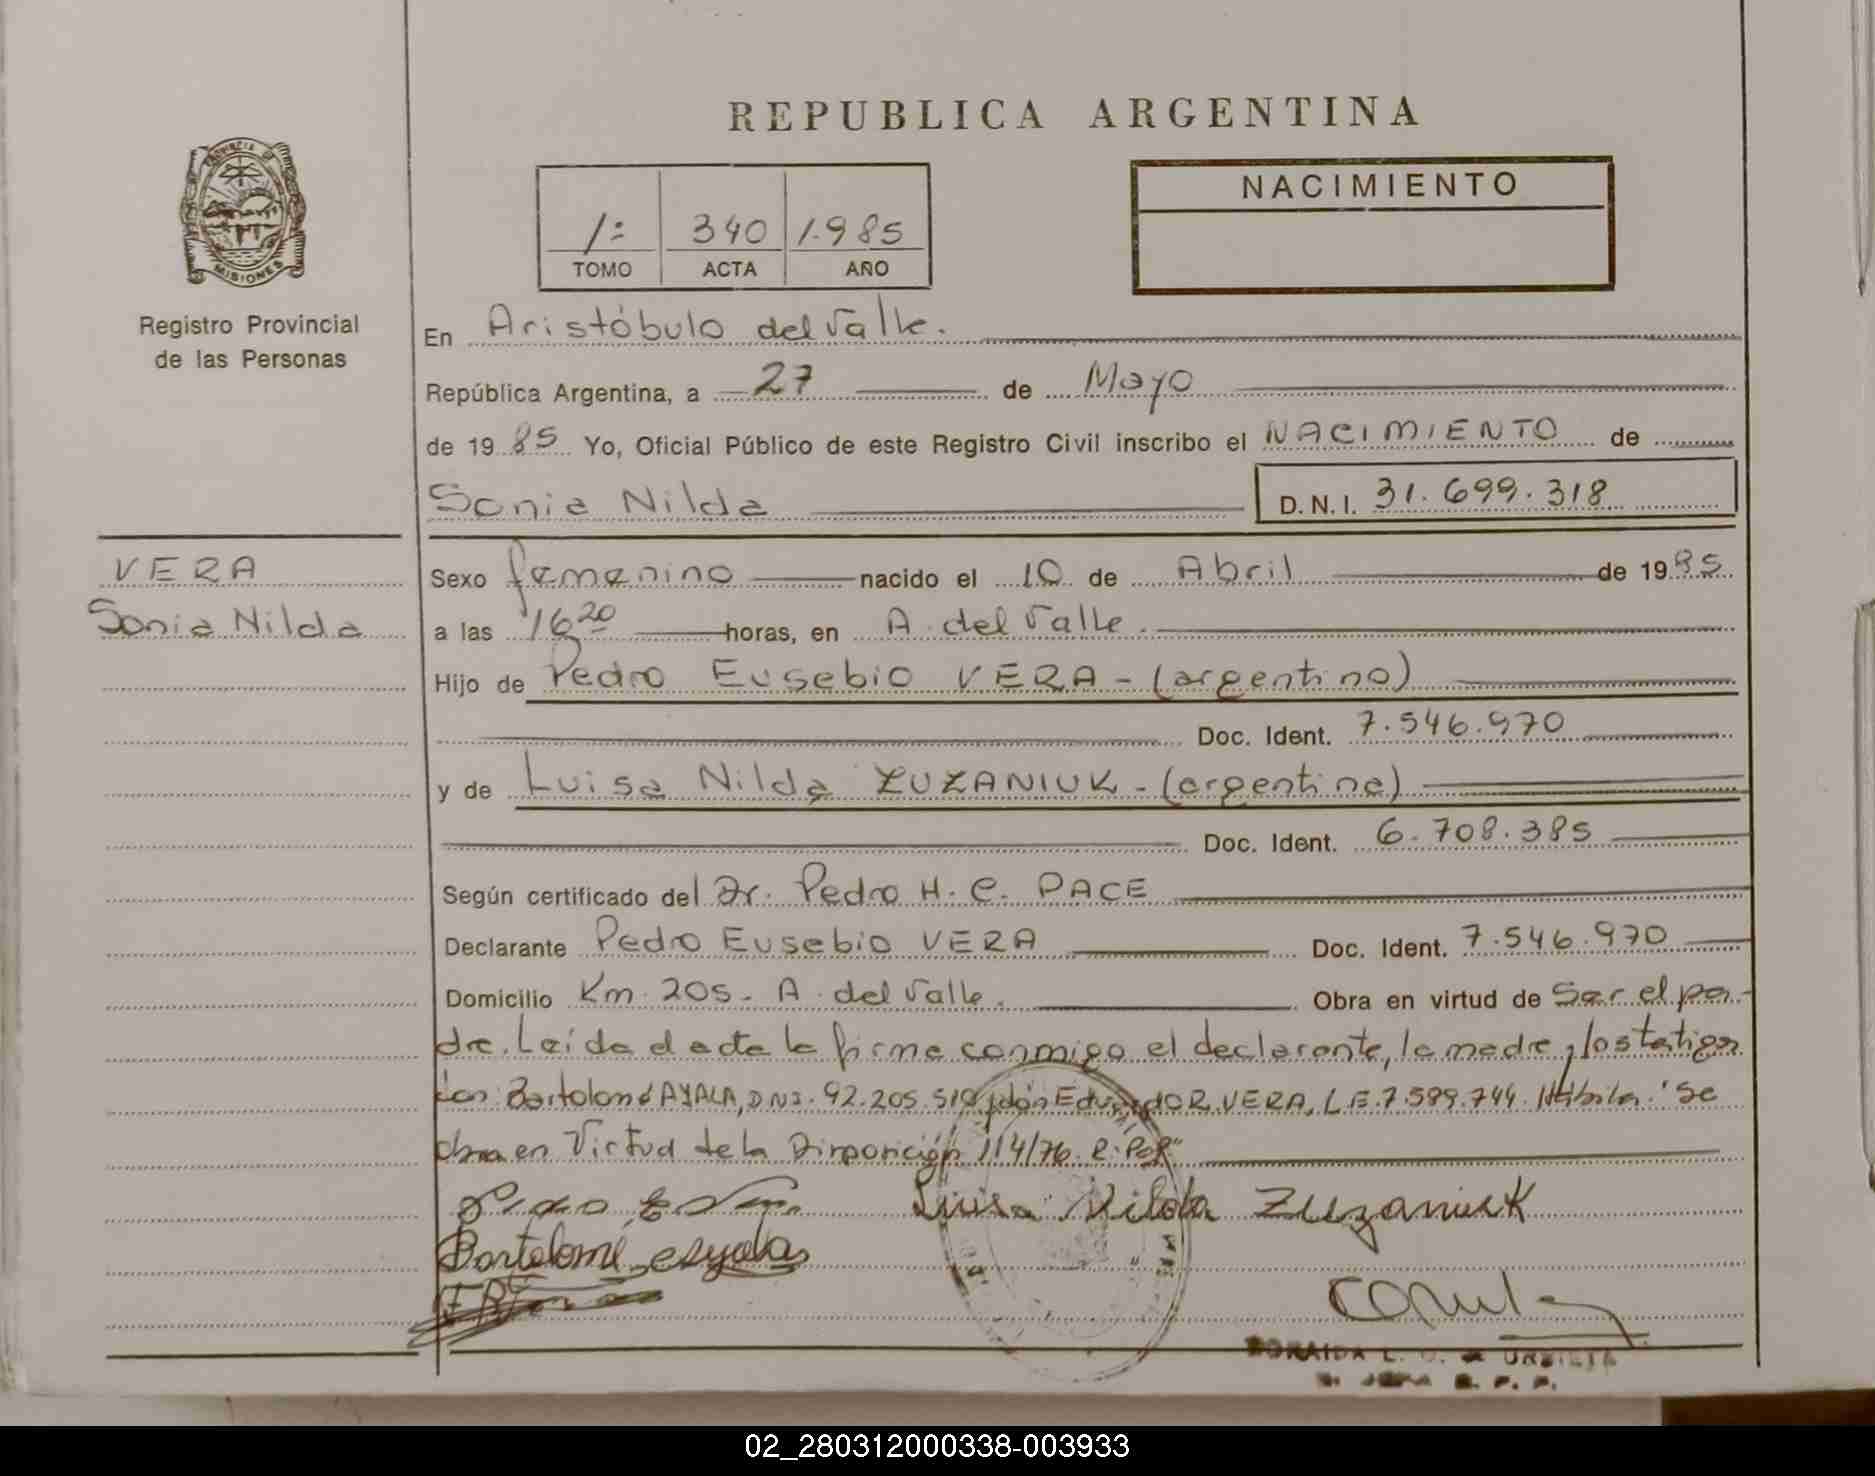 REPUBLICA ARGENTINA
PROVINCIA DE
MISIONES
Registro Provincial
de las Personas
1º 340 1.985
TOMO ACTA AÑO
NACIMIENTO
En Aristóbulo del Valle.
República Argentina, a 27 de Mayo
de 1985 Yo, Oficial Público de este Registro Civil inscribo el NACIMIENTO de
Sonia Nilda D.N.I. 31.699.318
VERA
Sonia Nilda
Sexo femenino nacido el 10 de Abril de 1985
a las 16 20 horas, en A. del Valle.
Hijo de Pedro Eusebio VERA - (argentino)
Doc. Ident. 7.546.970
y de Luisa Nilda ZUZANIUK - (argentina)
Doc. Ident. 6.708.385
Según certificado del Dr. Pedro H. C. PACE
Declarante Pedro Eusebio VERA Doc. Ident. 7.546.970
Domicilio Km. 205 - A. del Valle. Obra en virtud de Ser el pa-
dre. Leída el acta la firma conmigo el declarante, la madre y los testigos
don: Bartolomé AYALA, DNI. 92.205.510 y don Eduardo R. VERA, L.E. 7.589.744. "Se
obra en Virtud de la Disposición 114/76. R.P.P."
Luisa Nilda Zuzaniuk
Bartolome ayala
02_280312000338-003933